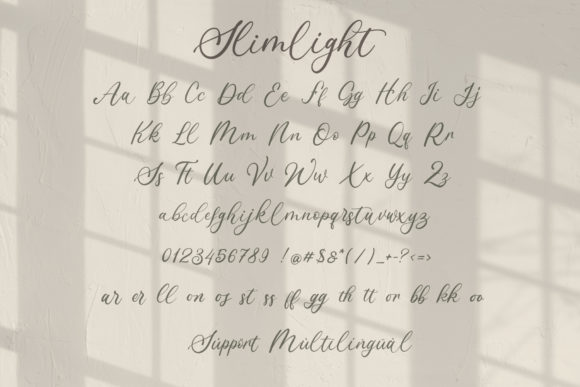 Slimlight
Aa Bb Cc Dd Ee Ff Gg Hh Ii Jj
Kk Ll Mm Nn Oo Pp Qq Rr
Ss Tt Uu Vv Ww Xx Yy Zz
abcdefghijklmnopqrstuvwxyz
0123456789 !@#$&*(/)_+-?<=>
ar er ll on os st ss ff gg th tt or bb kk oo
Support Multilingual